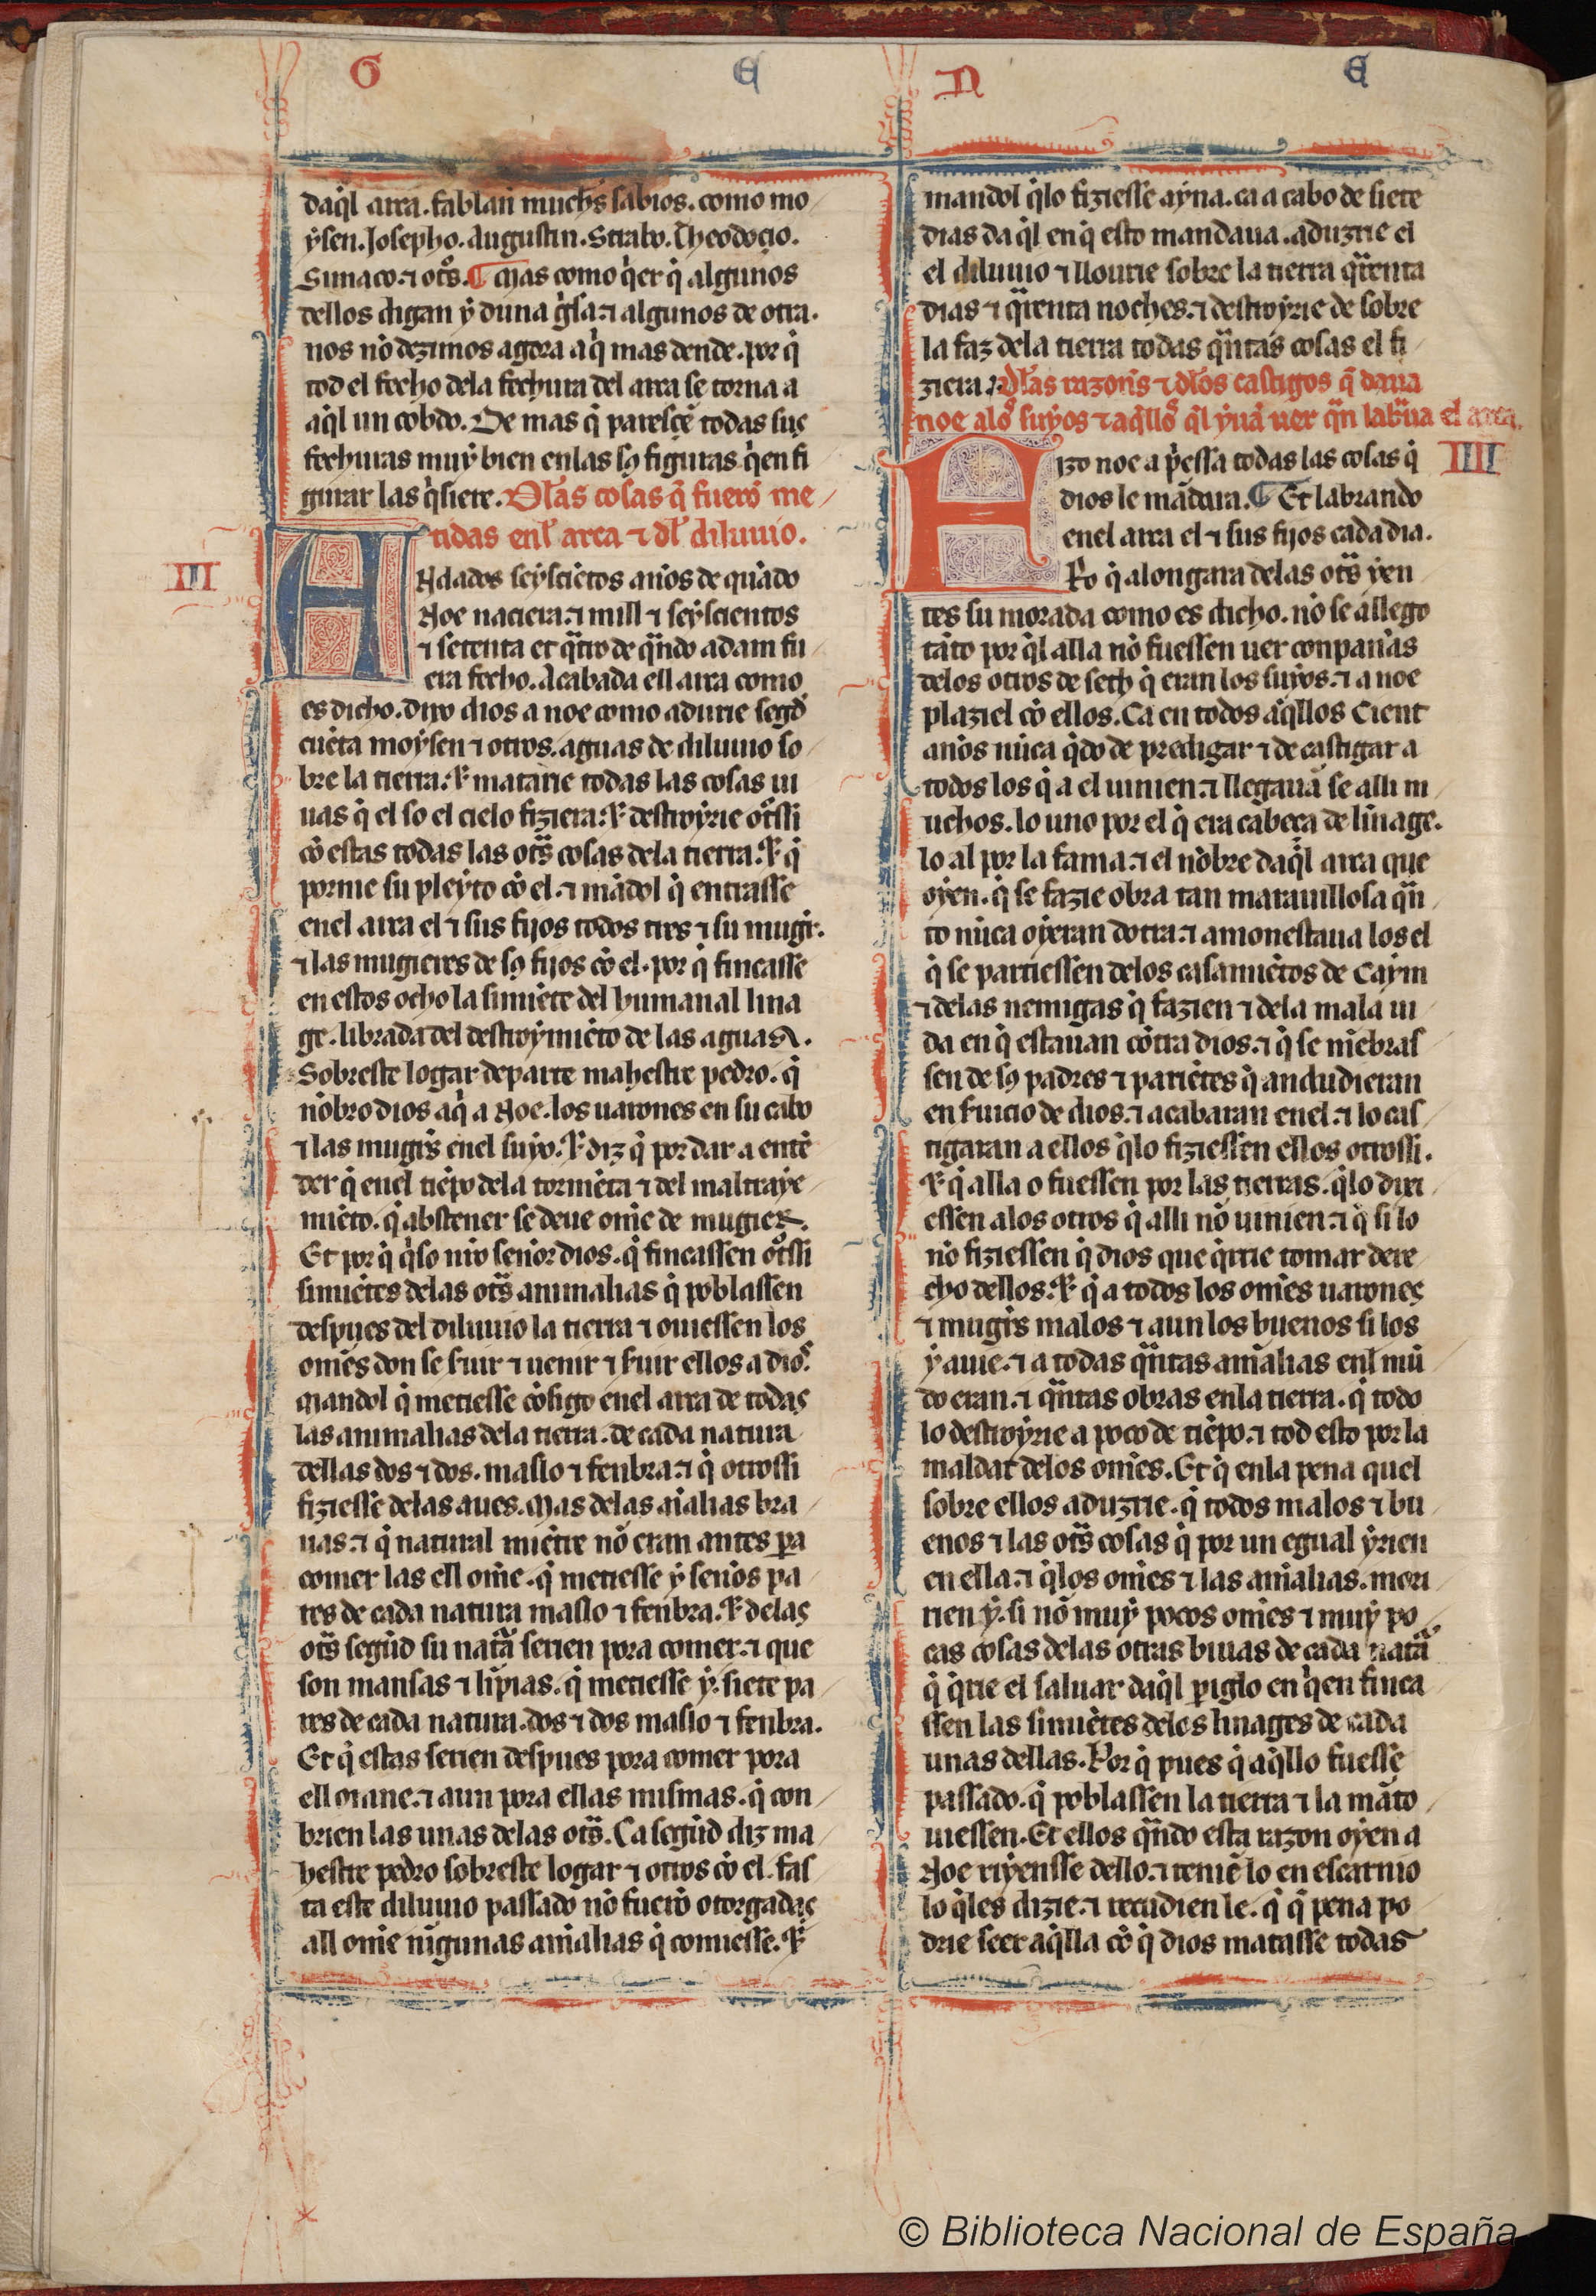 G E N E
daq̃l arca. fablan muchs̃ sabios. como mo
ysen. Josepho. Augustin. Strabo. Theodoçio.
Simaco. ⁊ ot̃s. ¶ Mas como q̃er q̃ algunos
dellos digan y duna g̃sa. ⁊ algunos de otra.
nos nõ dezimos agora aq̃ mas dende. por q̃
tod el fecho dela fechura del arca se torna a
aq̃l un cobdo. De mas q̃ paresçẽ todas sus
fechuras muy bien enlas sꝯ figuras. q̃en fi
gurar las q̃siere. Dl̃as cosas q̃ fuerõ me
tidas enl̃ arca ⁊ dl̃ diluuio.
III
ANdados seysciẽtos annos de quãdo
Noe naciera. ⁊ mill ⁊ seyscientos
⁊ setenta et q̃tro de q̃ndo adam fu
era fecho. Acabada ell arca como
es dicho. dixo dios a noe como adurie segũd
cuẽta moysen ⁊ otros. aguas de diluuio so
bre la tierra. ⁊ matarie todas las cosas ui
uas q̃ el so el cielo fiziera. ⁊ destroyrie ot̃ssi
cõ estas todas las ot̃s cosas dela tierra. ⁊ q̃
pornie su pleyto cõ el. ⁊ mãdol q̃ entrasse
enel arca el ⁊ sus fijos todos tres ⁊ su mugr̃.
⁊ las mugieres de sꝯ fijos cõ el. por q̃ fincasse
en estos ocho la simiẽte del humanal lina
ge. librada del destroymiẽto de las aguas.
Sobreste logar departe mahestre pedro. q̃
nõbro dios aq̃ a Noe. los uarones en su cabo
⁊ las mugr̃s enel suyo. ⁊ diz q̃ por dar a entẽ
der q̃ enel tiẽpo dela tormẽta ⁊ del maltraye
miẽto. q̃ abstener se deue om̃e de mugier.
Et por q̃ q̃so nr̃o sennor dios. q̃ fincassen ot̃ssi
simiẽtes delas ot̃s animalias q̃ poblassen
despues del diluuio la tierra ⁊ ouiessen los
om̃es don se seruir ⁊ uenir ⁊ seruir ellos a dios.
Mandol q̃ metiesse cõsigo enel arca de todas
las animalias dela tierra. de cada natura
dellas dos ⁊ dos. maslo ⁊ fenbra. ⁊ q̃ otrossi
fiziesse delas aues. Mas delas aĩalias bra
uas. ⁊ q̃ natural miẽtre nõ eran antes pa
comer las ell om̃e. q̃ metiesse y sennos pa
res de cada natura maslo ⁊ fenbra. ⁊ delas
ot̃s segũd su natã serien pora comer. ⁊ que
son mansas ⁊ lĩpias. q̃ metiesse y. siete pa
res de cada natura. dos ⁊ dos maslo ⁊ fenbra.
Et q̃ estas serien despues pora comer pora
ell omne. ⁊ aun pora ellas mismas. q̃ con
brien las unas delas ot̃s. Ca segũd diz ma
hestre pedro sobreste logar ⁊ otros cõ el. fas
ta este diluuio passado nõ fuerõ otorgadas
all om̃e nĩgunas aĩalias q̃ comiesse. ⁊
mandol q̃lo fiziesse ayna. ca a cabo de siete
dias daq̃l en q̃ esto mandaua. aduzrie el
el diluuio ⁊ llourie sobre la tierra q̃renta
dias ⁊ q̃renta noches. ⁊ destroyrie de sobre
la faz dela tierra todas q̃ntas cosas el fi
ziera. Dl̃as razons̃ ⁊ dl̃os castigos q̃ daua
noe alos suyos ⁊ aq̃llos q̃l yuã uer q̃n labraua el arca.
IIII
FIzo noe a p̃essa todas las cosas q̃
dios le mãdara. ¶ Et labrando
enel arca el ⁊ sus fijos cada dia.
Po q̃ alongara delas ot̃s yen
tes su morada como es dicho. nõ se allego
tãto por q̃l alla nõ fuessen uer conpannas
delos otros de seth q̃ eran los suyos. ⁊ a noe
plaziel cõ ellos. Ca en todos aq̃llos Cient
annos nũca q̃do de predigar ⁊ de castigar a
todos los q̃ a el uinien. ⁊ llegauã se alli m
uchos. lo uno por el q̃ era cabeça de linage.
lo al por la fama. ⁊ el nõbre daq̃l arca que
oyen. q̃ se fazie obra tan marauillosa q̃n
to nũca oyeran dotra. ⁊ amonestaua los el
q̃ se partiessen delos casamiẽtos de Caym
⁊ delas nemigas q̃ fazien ⁊ dela mala ui
da en q̃ estauan cõtra dios. ⁊ q̃ se niẽbras
sen de sꝯ padres ⁊ pariẽtes q̃ andudieran
en seruicio de dios. ⁊ acabaran enel. ⁊ lo cas
tigaran a ellos q̃lo fiziessen ellos otrossi.
⁊ q̃ alla o fuessen por las tierras. q̃lo dixi
essen alos otros q̃ alli nõ uinien. ⁊ q̃ si lo
nõ fiziessen q̃ dios que q̃rrie tomar dere
cho dellos. ⁊ q̃ a todos los om̃es uarones
⁊ mugr̃s malos ⁊ aun los buenos si los
y auie. ⁊ a todas q̃ntas aĩalias enl mũ
do eran. ⁊ q̃ntas obras enla tierra. q̃ todo
lo destroyrie a poco de tiẽpo. ⁊ tod esto por la
maldat delos om̃es. Et q̃ enla pena quel
sobre ellos aduzrie. q̃ todos malos ⁊ bu
enos ⁊ las ot̃s cosas q̃ por un egual yrien
en ella. ⁊ q̃los om̃es ⁊ las aĩalias. mori
rien y. si nõ muy pocos om̃es ⁊ muy po
cas cosas delas otras biuas de cada natã
q̃ q̃rie el saluar daq̃l periglo en q̃en finca
ssen las simiẽtes delos linages de cada
unas dellas. Por q̃ pues q̃ aq̃llo fuesse
passado. q̃ poblassen la tierra ⁊ la mãto
uiessen. Et ellos q̃ndo esta razon oyen a
Noe riyensse dello. ⁊ teniẽ lo en escarnio
lo q̃les dizie. ⁊ recudien le. q̃ q̃ pena po
drie seer aq̃lla cõ q̃ dios matasse todas
© Biblioteca Nacional de España